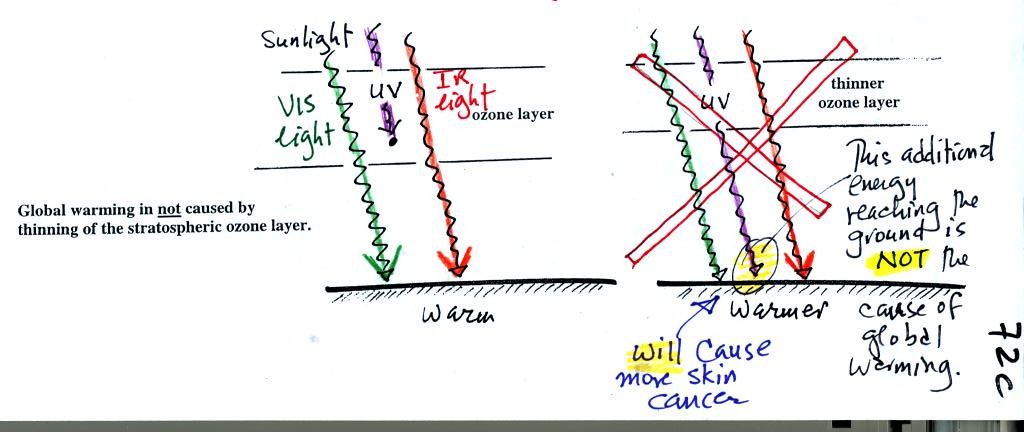 Global warming in not caused by
thinning of the stratospheric ozone layer.
Sunlight
UV
VIS
light
IR
light
ozone layer
Warm
UV
thinner
ozone layer
This additional
energy
reaching the
ground is
NOT the
cause of
global
warming.
Warmer
Will Cause
more skin
cancer
72c